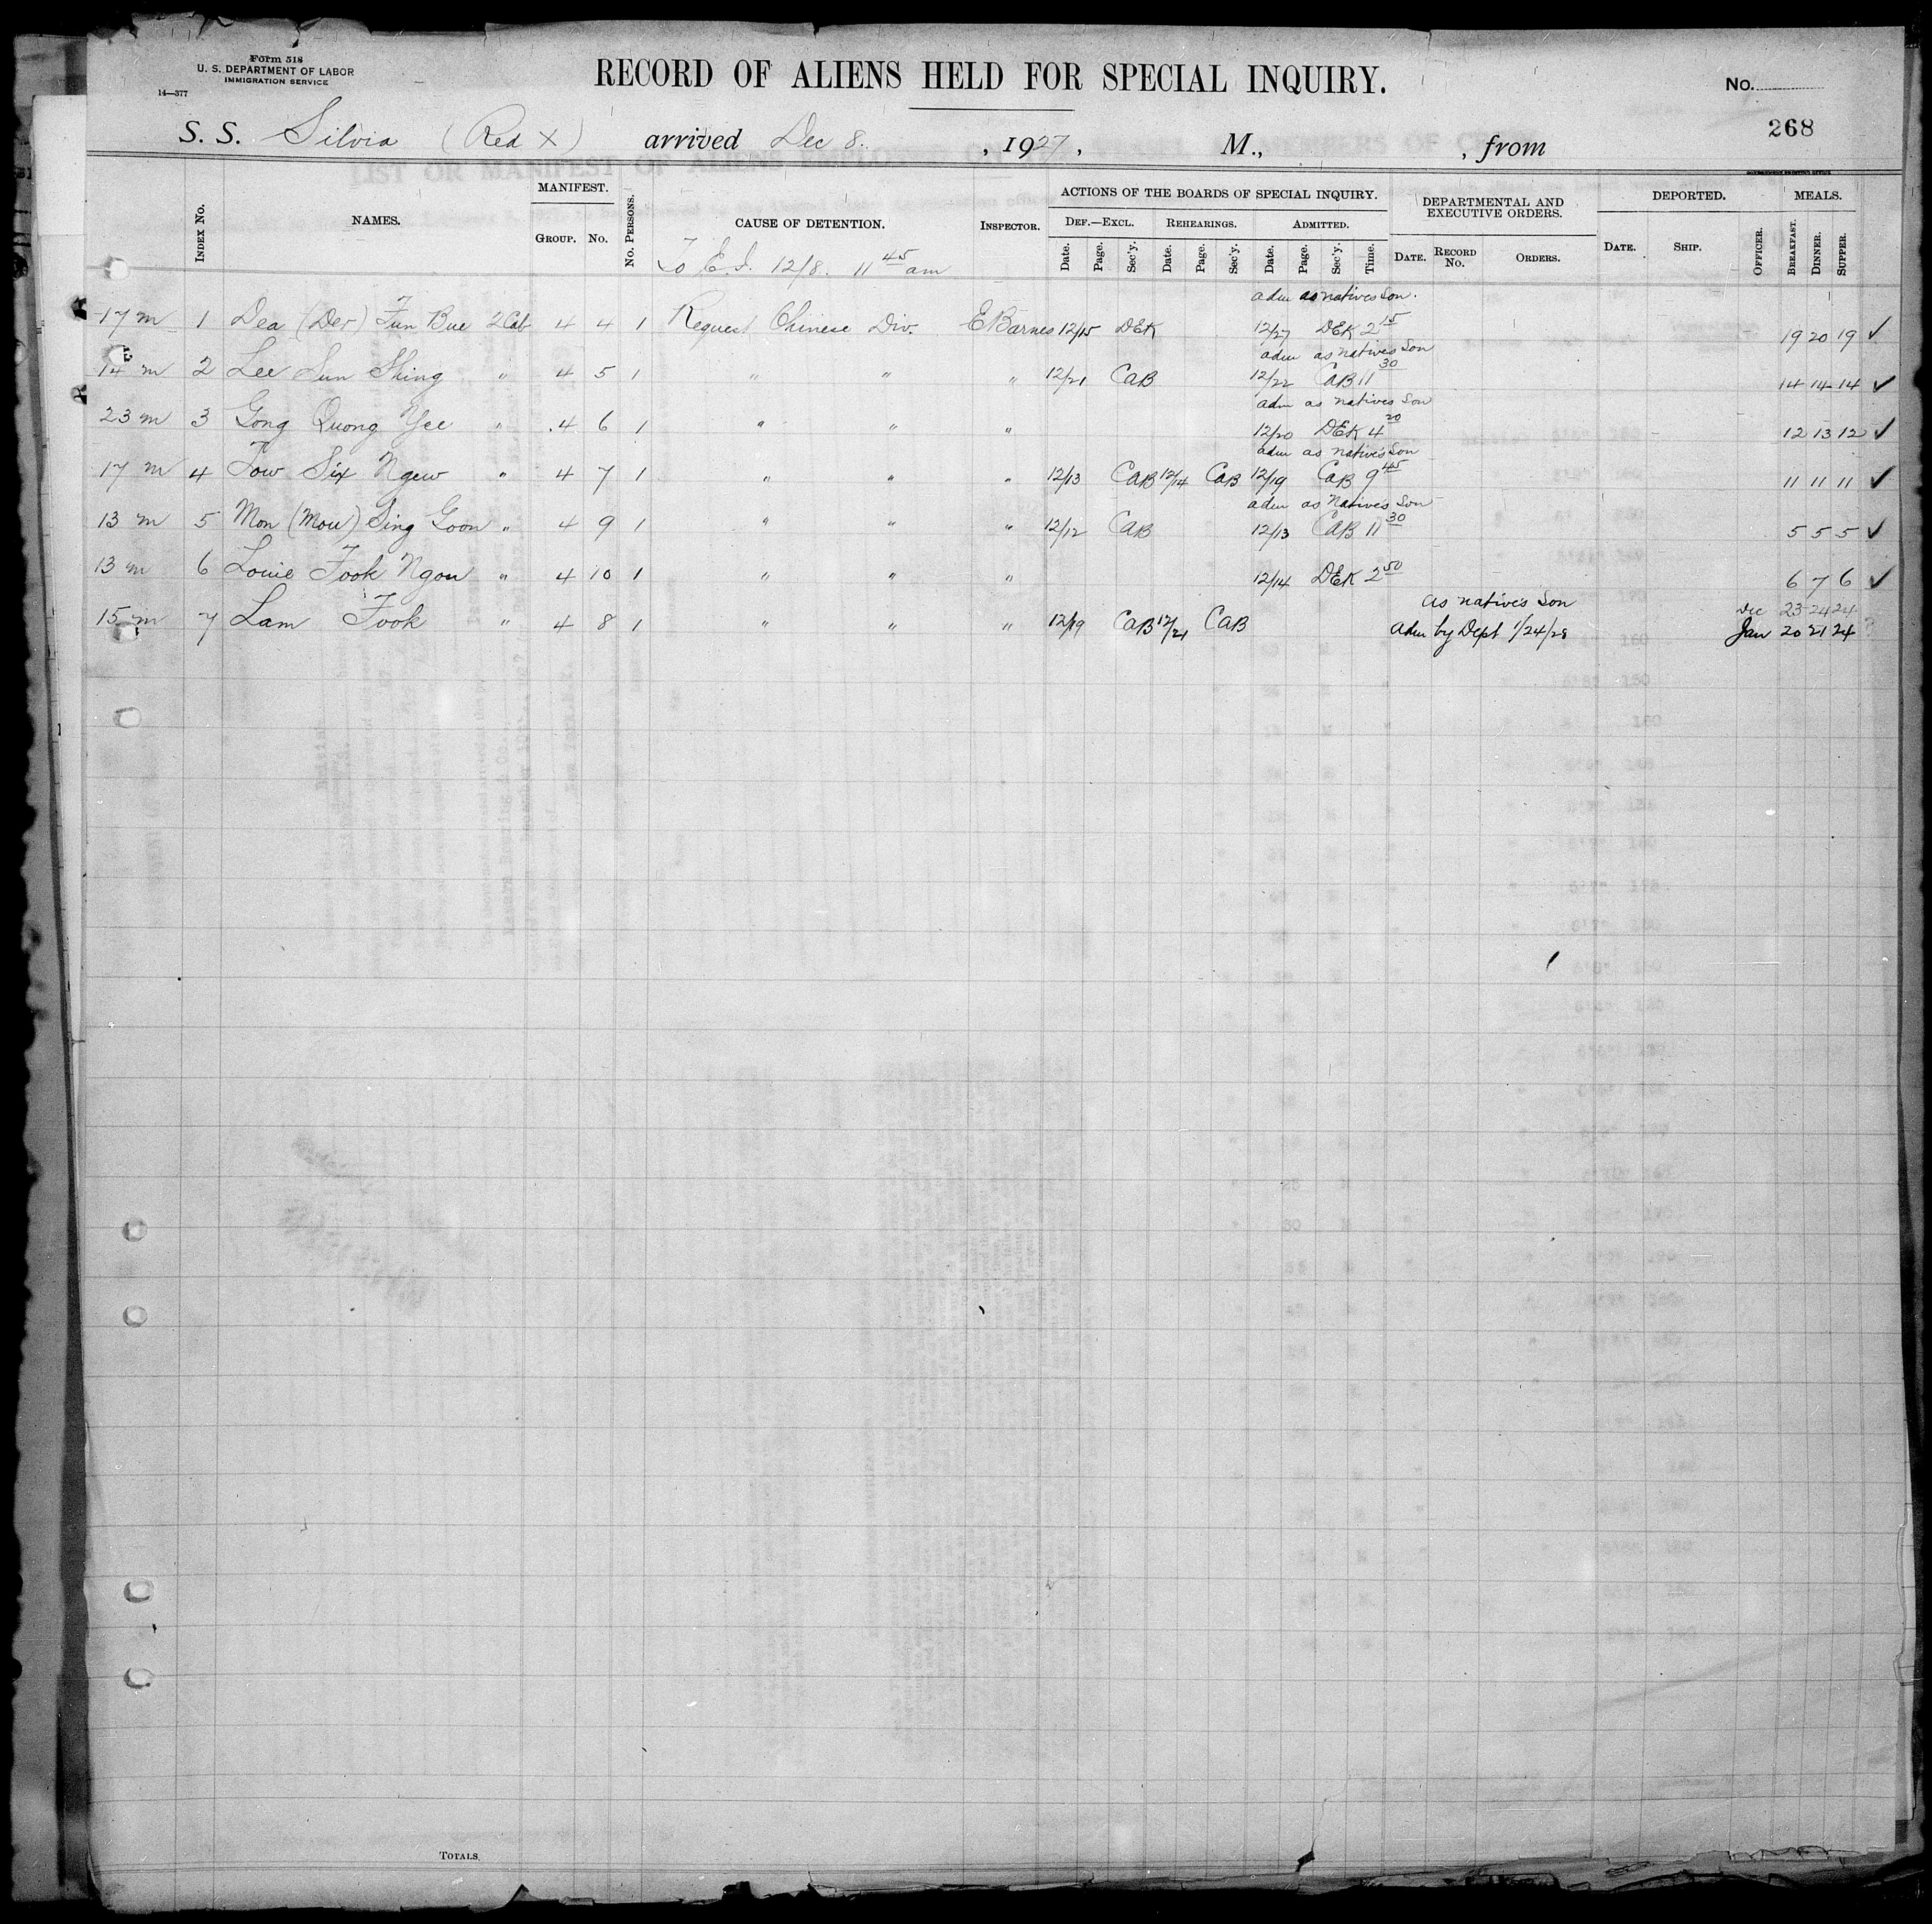 Form 518
U. S. DEPARTMENT OF LABOR
IMMIGRATION SERVICE
14—377
RECORD OF ALIENS HELD FOR SPECIAL INQUIRY.
No.
268
S. S. Silvia (Red X) arrived Dec 8. , 1927, M., , from
INDEX No. NAMES. MANIFEST. GROUP. No. No. PERSONS. CAUSE OF DETENTION. INSPECTOR. ACTIONS OF THE BOARDS OF SPECIAL INQUIRY. DEF.—EXCL. Date. Page. Sec'y. REHEARINGS. Date. Page. Sec'y. ADMITTED. Date. Page. Sec'y. Time. DEPARTMENTAL AND EXECUTIVE ORDERS. DATE. RECORD No. ORDERS. DEPORTED. DATE. SHIP. OFFICER. MEALS. BREAKFAST. DINNER. SUPPER.
To E.I. 12/8. 11 45 am
adm as natives Son.
17 m 1 Dea (Der) Fun Bue 2 Cab 4 4 1 Request Chinese Div. E Barnes 12/15 DEK 12/27 DEK 2 15 19 20 19 ✓
adm as natives Son
14 m 2 Lee Sun Shing " 4 5 1 " " " 12/21 CAB 12/22 CAB 11 30 14 14 14 ✓
adm as natives Son
23 m 3 Gong Quong Yee " 4 6 1 " " " 12/20 DEK 4 20 12 13 12 ✓
adm as natives Son
17 m 4 Tow Six Ngew " 4 7 1 " " " 12/13 CAB 12/14 CAB 12/19 CAB 9 45 11 11 11 ✓
adm as natives Son
13 m 5 Mon (Mou) Sing Goon " 4 9 1 " " " 12/12 CAB 12/13 CAB 11 30 5 5 5 ✓
13 m 6 Louie Fook Ngou " 4 10 1 " " " 12/14 DEK 2 50 6 7 6 ✓
as natives Son Dec 23 24 24
15 m 7 Lam Fook " 4 8 1 " " " 12/19 CAB 12/21 CAB adm by Dept 1/24/28 Jan 20 21 24
TOTALS